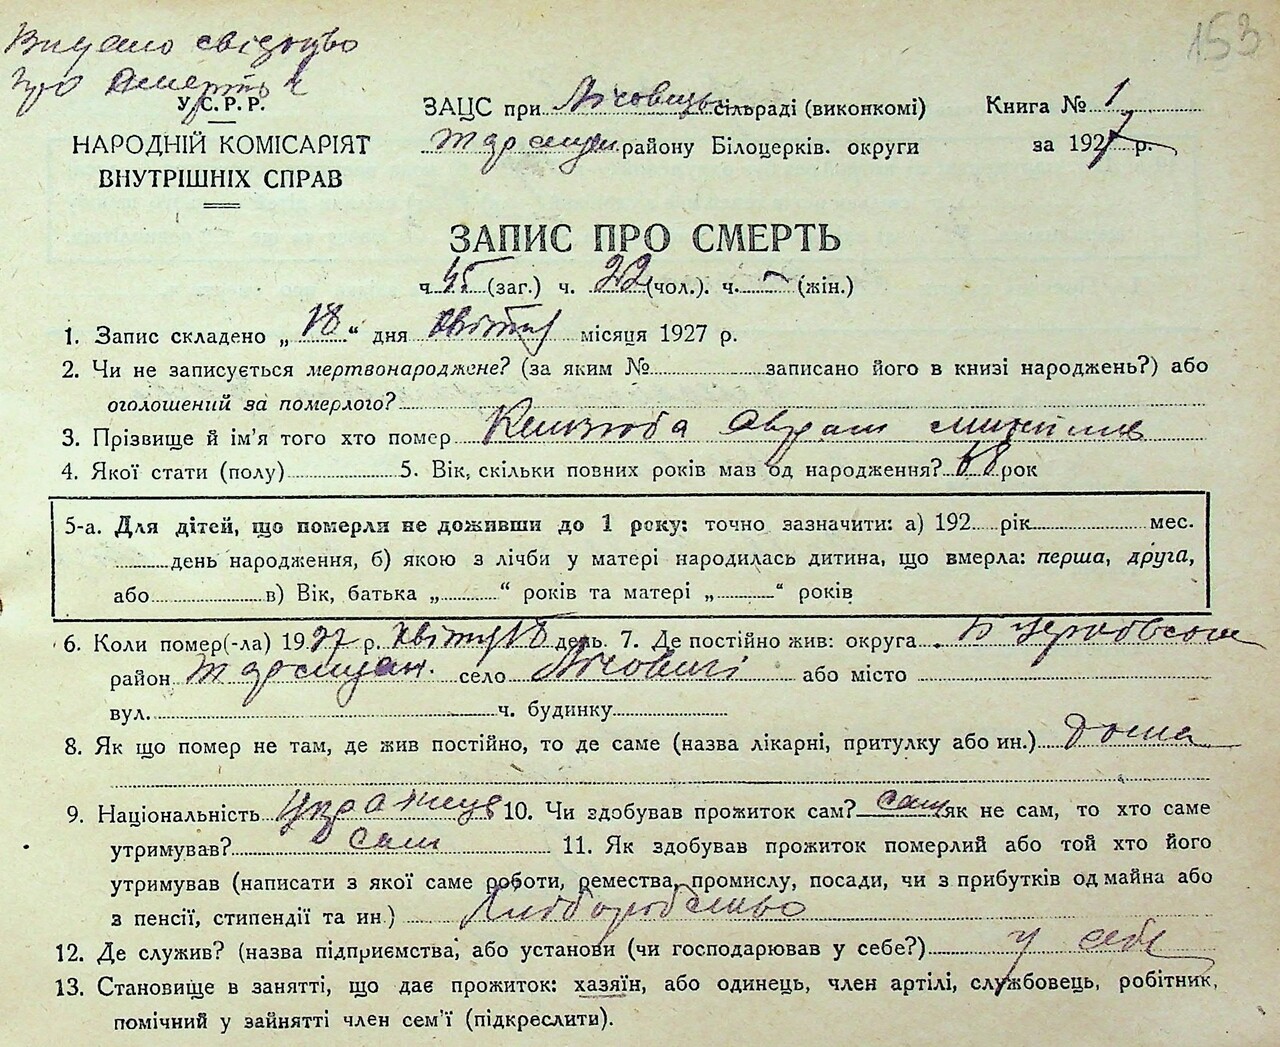 Видано свідоцво
про смерть
153
У.С.Р.Р.
НАРОДНІЙ КОМІСАРІЯТ
ВНУТРІШНІХ СПРАВ
ЗАЦС при Лісовицьк. сільраді (виконкомі)
Таращан. району Білоцерків. округи
Книга № 1
за 1927 р.
ЗАПИС ПРО СМЕРТЬ
ч. 45 (заг.) ч. 22 (чол.). ч. – (жін.)
1. Запис складено „ 18 “ дня квітня місяця 1927 р.
2. Чи не записується мертвонароджене? (за яким № записано його в книзі народжень?) або
оголошений за померлого?
3. Прізвище й ім'я того хто помер Аврам
4. Якої стати (полу) 5. Вік, скільки повних років мав од народження? 68 рок
5-а. Для дітей, що померли не доживши до 1 року: точно зазначити: а) 192 рік мес.
день народження, б) якою з лічби у матері народилась дитина, що вмерла: перша, друга,
або в) Вік, батька „ “ років та матері „ “ років
6. Коли помер(-ла) 1927 р. квітня 18 день. 7. Де постійно жив: округа Б Церковська
район Таращан. село Лісовичі або місто
вул. ч. будинку
8. Як що помер не там, де жив постійно, то де саме (назва лікарні, притулку або ин.) дома
9. Національність Українець 10. Чи здобував прожиток сам? сам як не сам, то хто саме
утримував? сам 11. Як здобував прожиток померлий або той хто його
утримував (написати з якої саме роботи, ремества, промислу, посади, чи з прибутків од майна або
з пенсії, стипендії та ин.) Хліборобство
12. Де служив? (назва підприємства, або установи (чи господарював у себе?) у себе
13. Становище в занятті, що дає прожиток: хазяїн, або одинець, член артілі, службовець, робітник,
помічний у зайнятті член сем'ї (підкреслити).